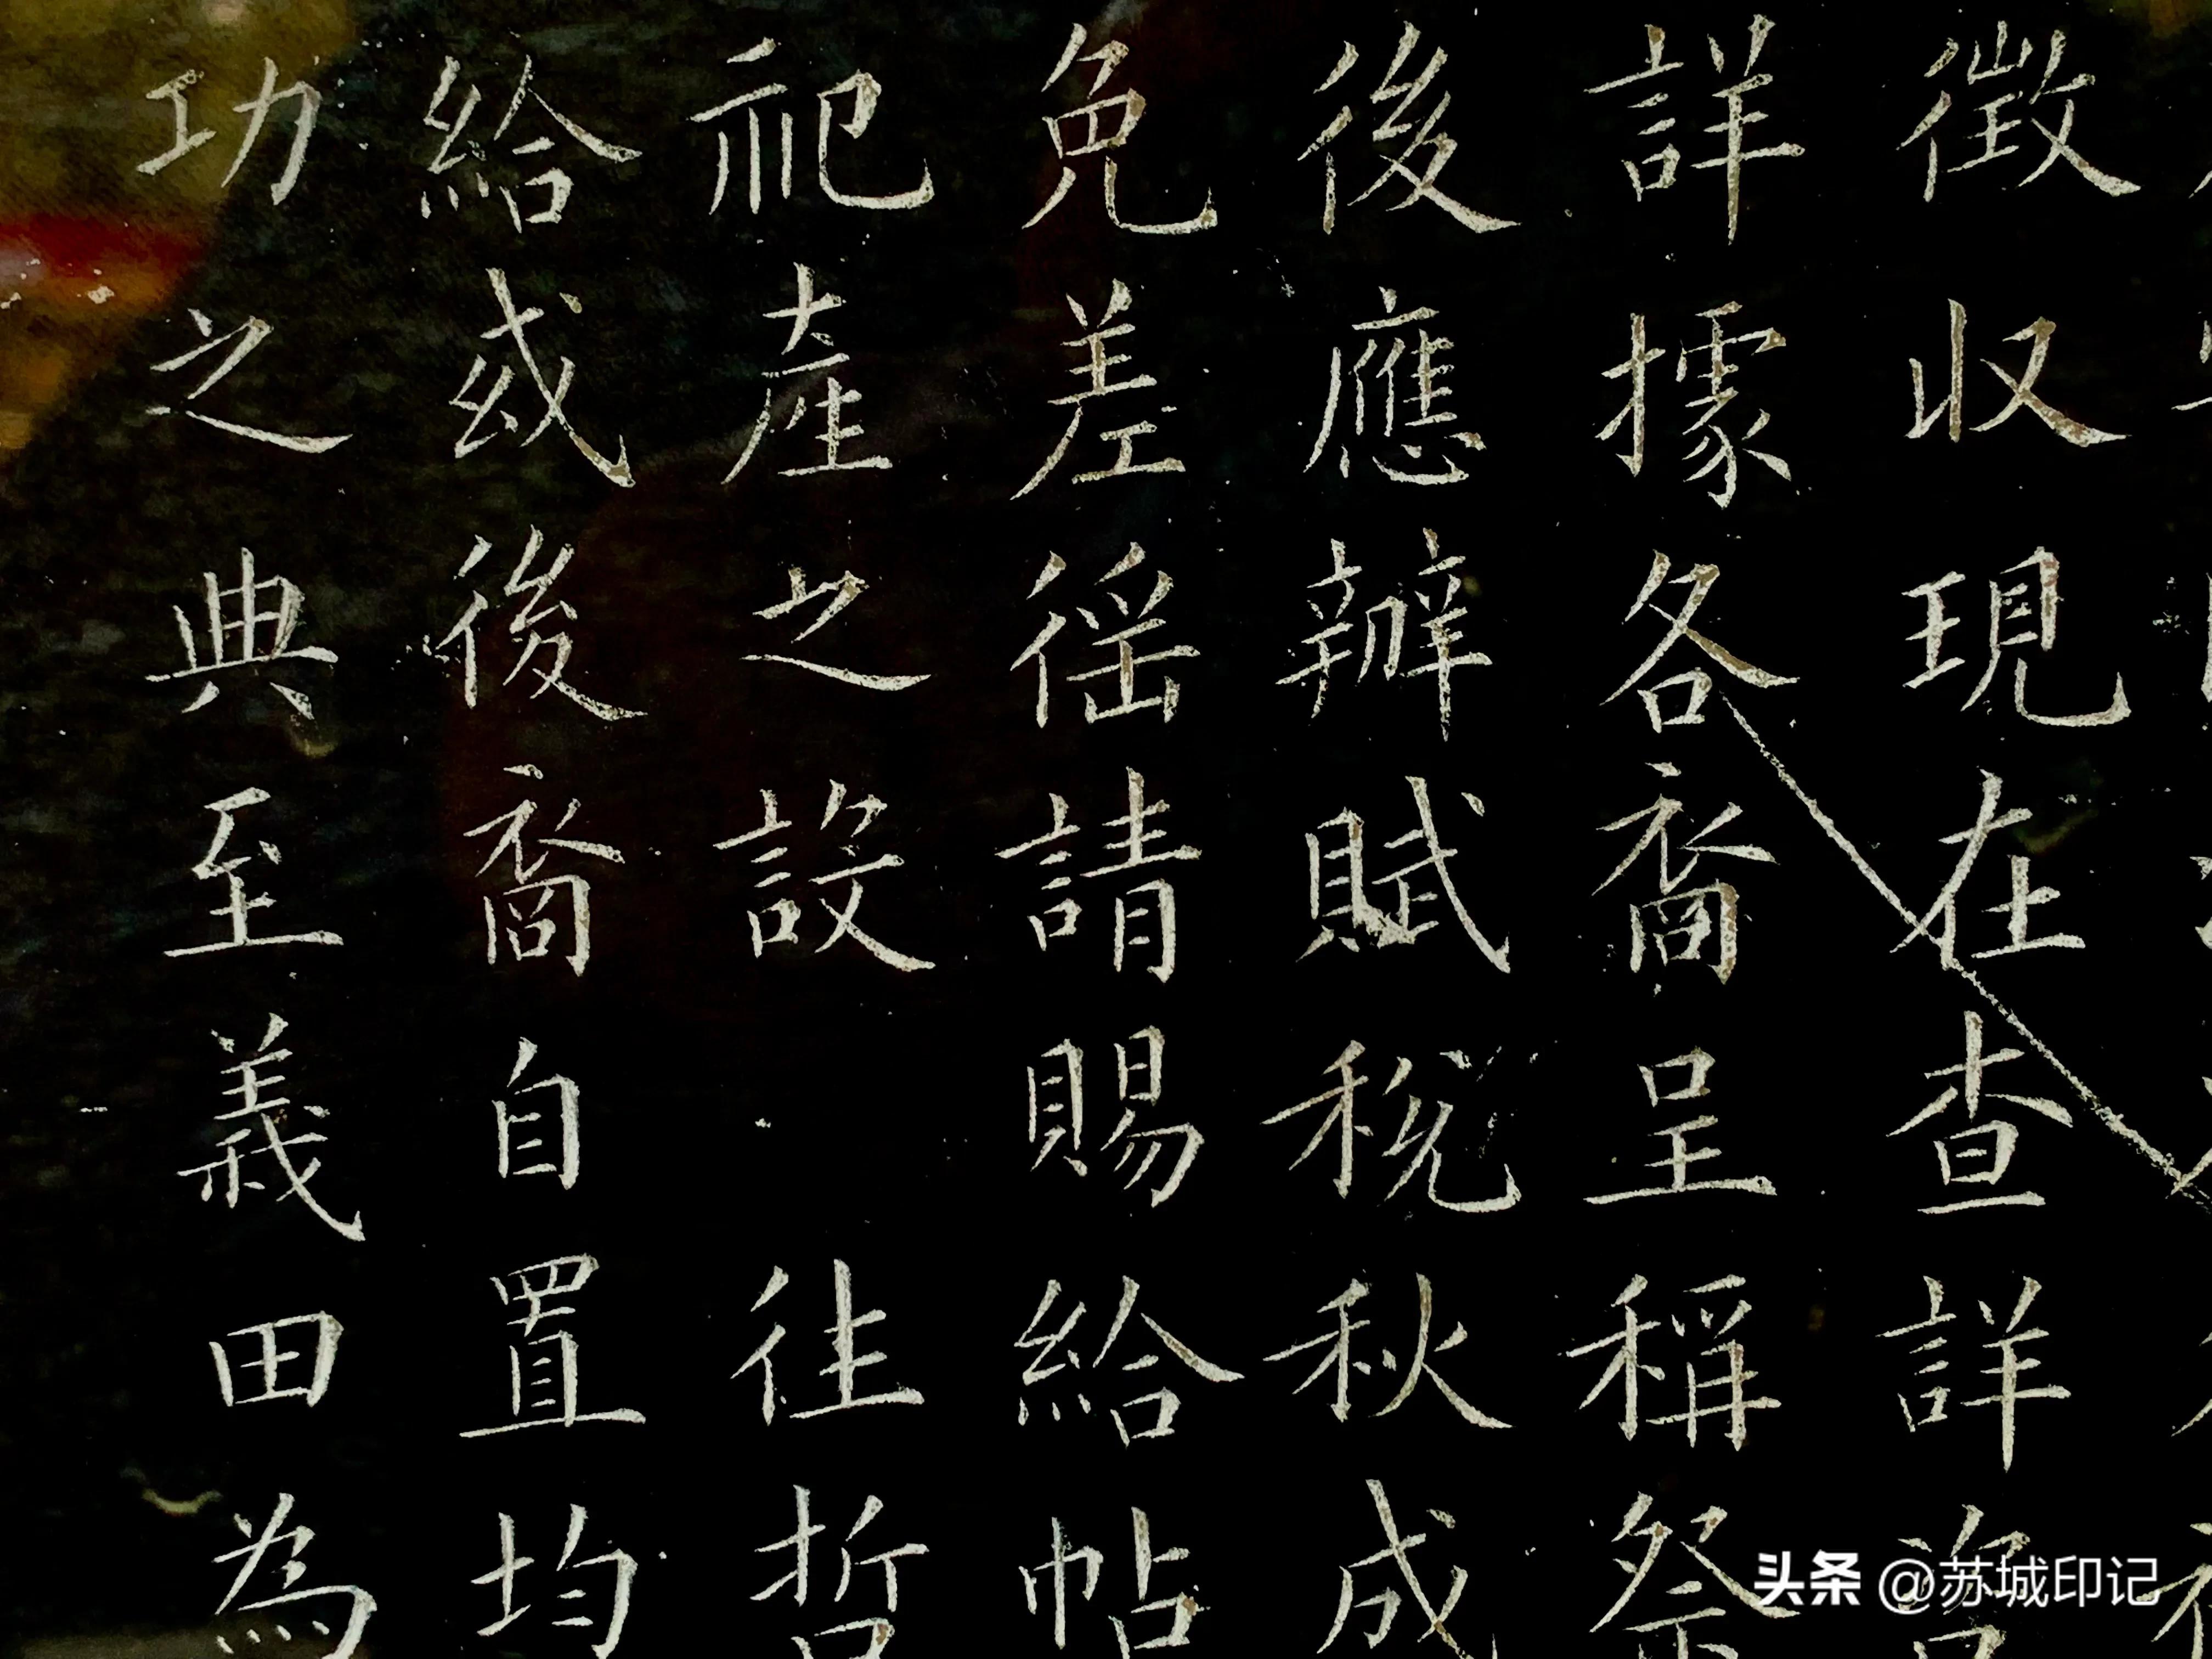 徵収現在查詳
詳據各裔呈稱祭
後應辦賦稅秋成
免差徭請賜給帖
祀產之設徃哲
給或後裔自置均
功之典至義田為
头条 @苏城印记